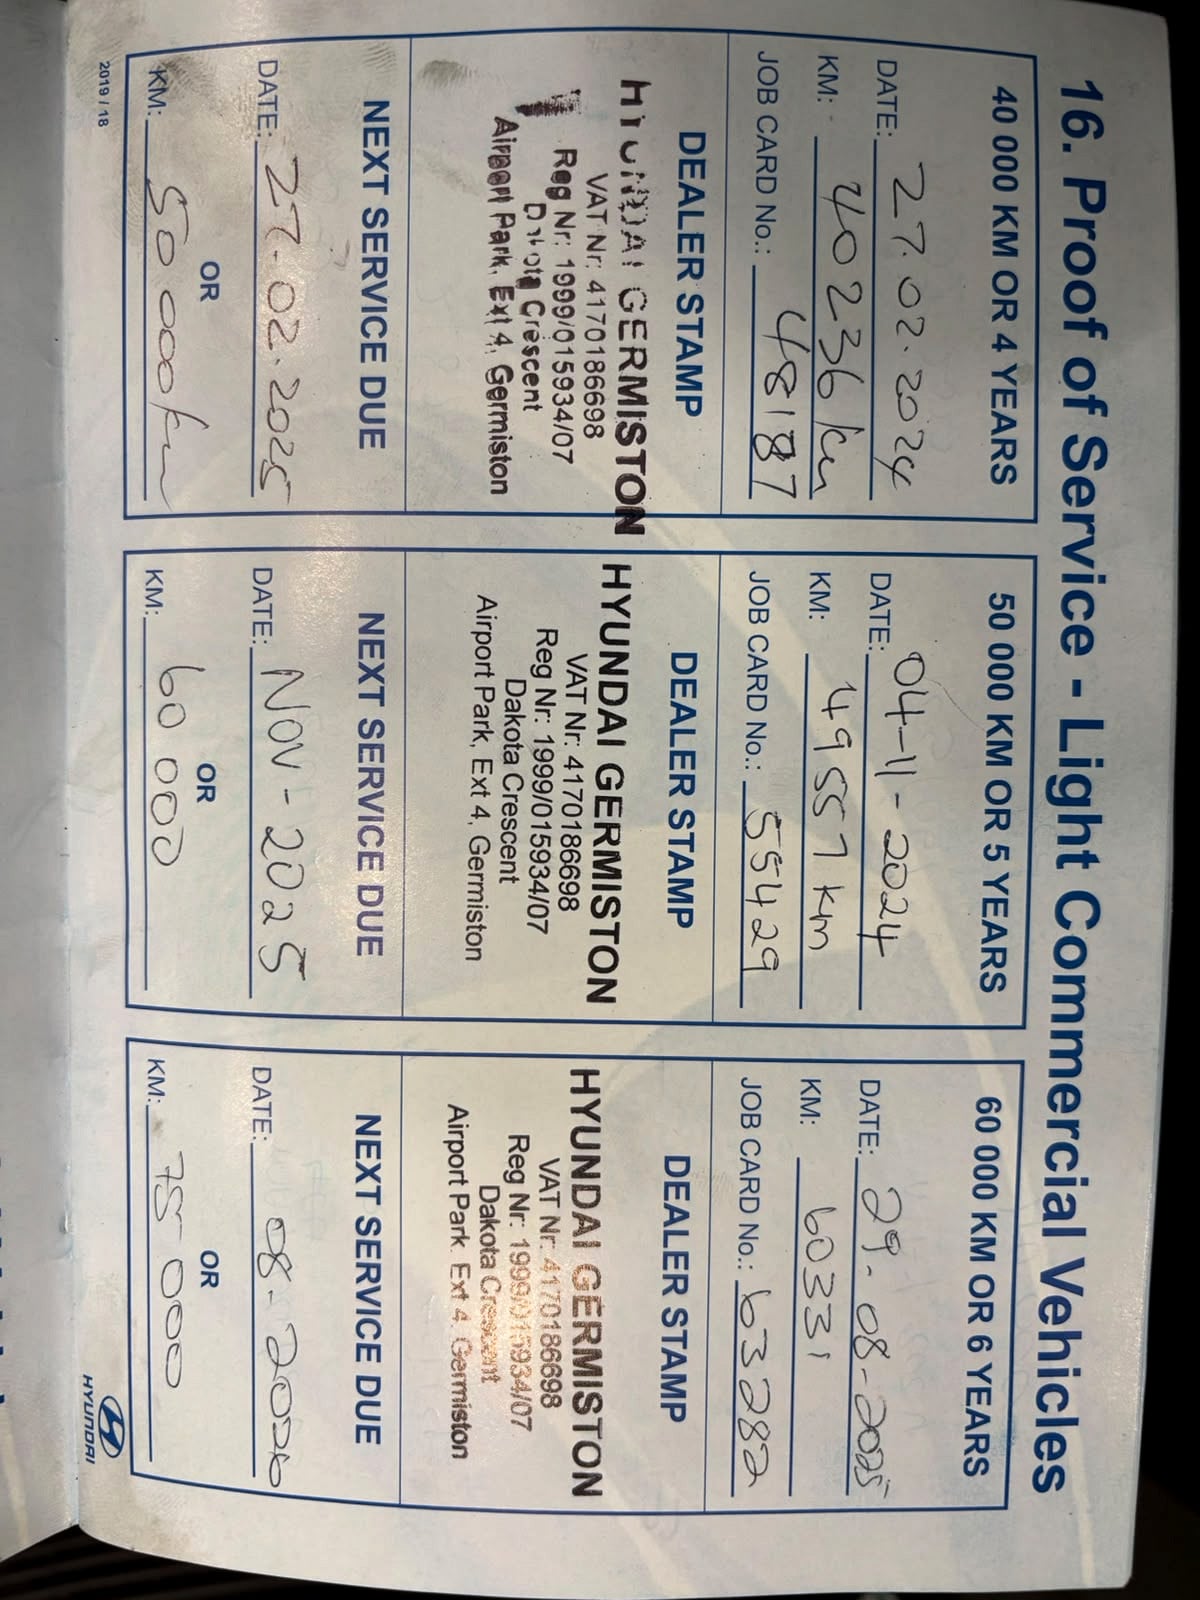 16. Proof of Service - Light Commercial Vehicles
40 000 KM OR 4 YEARS
DATE: 27.02.2024
KM: 40236 km
JOB CARD No.: 48187
DEALER STAMP
HYUNDAI GERMISTON
VAT Nr: 4170186698
Reg Nr: 1999/015934/07
Dakota Crescent
Airport Park, Ext 4, Germiston
NEXT SERVICE DUE
DATE: 27.02.2025
OR
KM: 50 000km
2019 / 18
50 000 KM OR 5 YEARS
DATE: 04-11-2024
KM: 49557 km
JOB CARD No.: 55429
DEALER STAMP
HYUNDAI GERMISTON
VAT Nr: 4170186698
Reg Nr: 1999/015934/07
Dakota Crescent
Airport Park, Ext 4, Germiston
NEXT SERVICE DUE
DATE: NOV-2025
OR
KM: 60 000
60 000 KM OR 6 YEARS
DATE: 29-08-2025
KM: 60331
JOB CARD No.: 63282
DEALER STAMP
HYUNDAI GERMISTON
VAT Nr: 4170186698
Reg Nr: 1999/015934/07
Dakota Crescent
Airport Park, Ext 4, Germiston
NEXT SERVICE DUE
DATE: 08-2026
OR
KM: 75 000
HYUNDAI